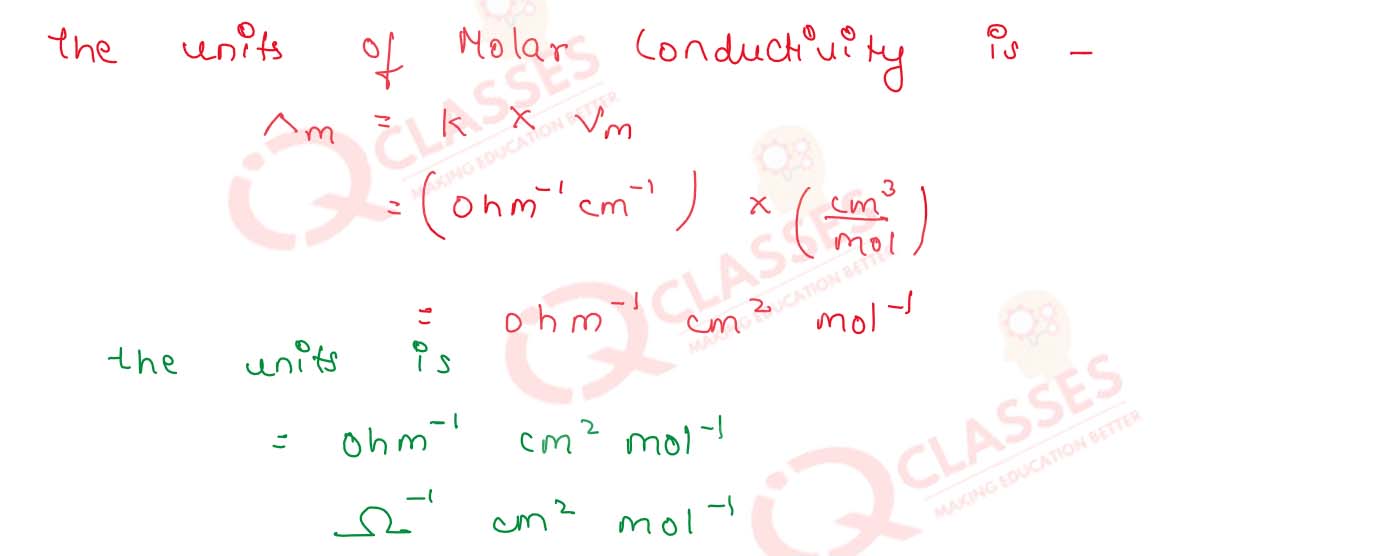 the units of Molar Conductivity is -
Λm = k × Vm
= (ohm⁻¹ cm⁻¹) × (cm³/mol)
= ohm⁻¹ cm² mol⁻¹
the units is
= ohm⁻¹ cm² mol⁻¹
Ω⁻¹ cm² mol⁻¹
IQ CLASSES
MAKING EDUCATION BETTER
IQ CLASSES
MAKING EDUCATION BETTER
IQ CLASSES
MAKING EDUCATION BETTER